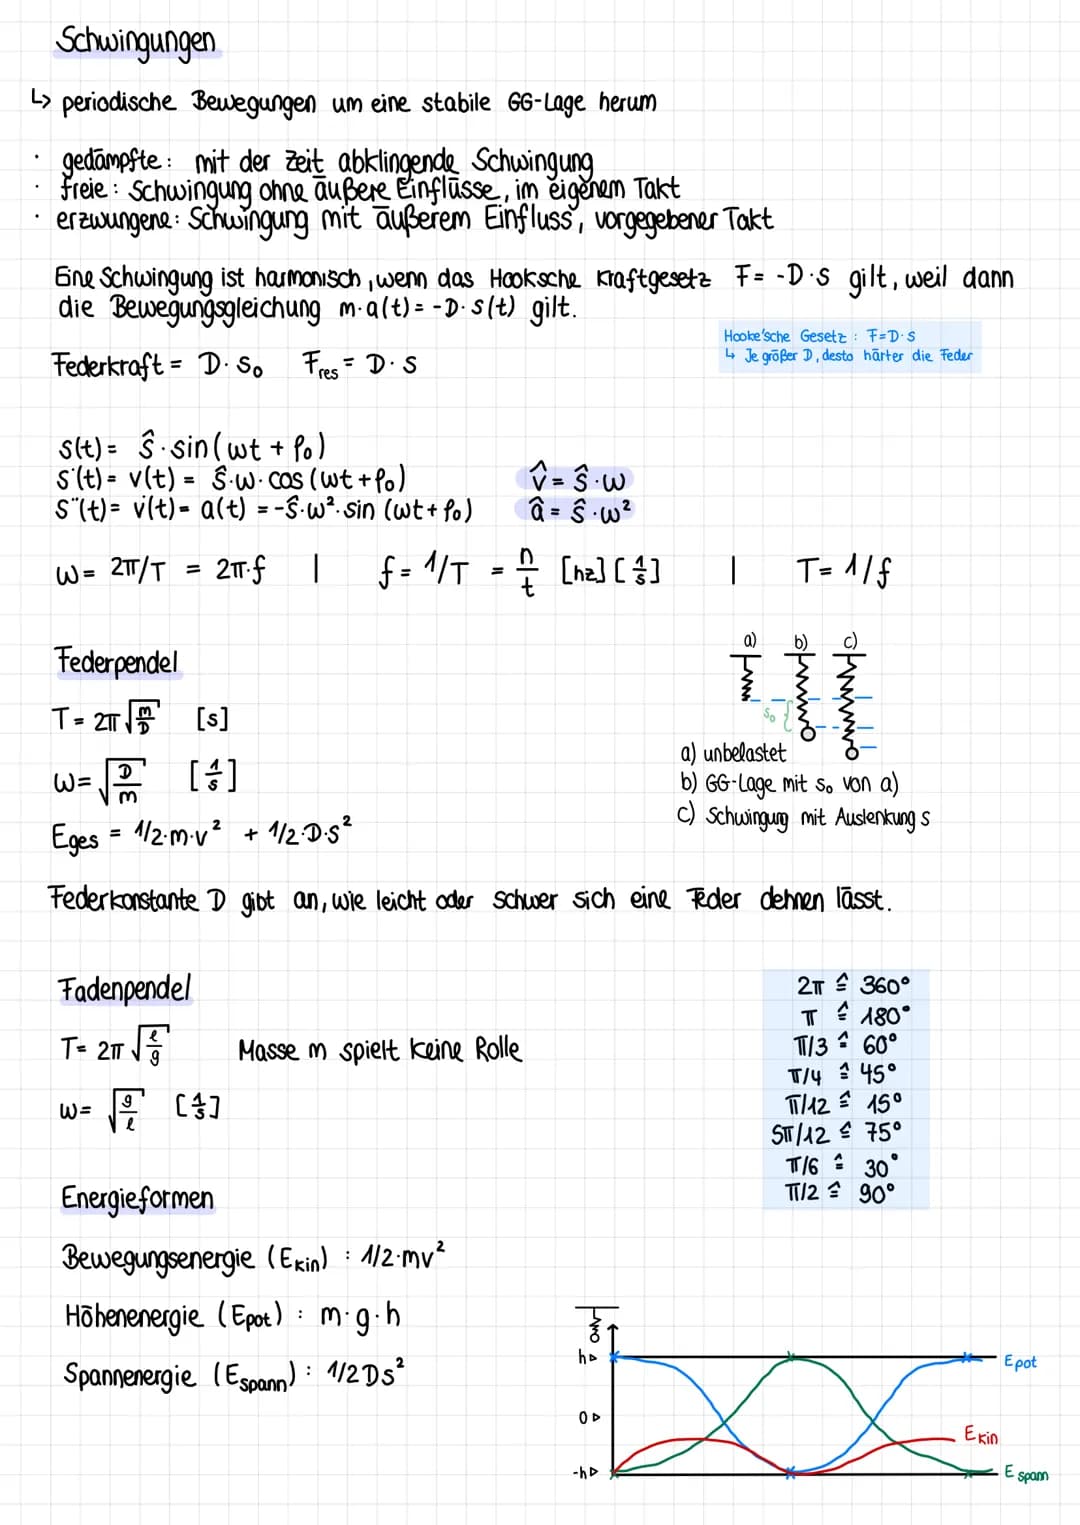 Schwingungen
↳ periodische Bewegungen um eine stabile GG-Lage herum
· gedämpfte: mit der Zeit abklingende Schwingung
· freie: Schwingung ohne äußere Einflüsse, im eigenem Takt
· erzwungene: Schwingung mit äußerem Einfluss, vorgegebener Takt
Eine Schwingung ist harmonisch, wenn das Hooksche Kraftgesetz F = -D·s gilt, weil dann
die Bewegungsgleichung m·a(t) = -D·s(t) gilt.
Hooke'sche Gesetz: F=D·s
↳ Je größer D, desto härter die Feder
Federkraft = D·s₀ Fres = D·s
s(t) = ŝ·sin(ωt + φ₀)
s˙(t) = v(t) = ŝ·ω·cos(ωt + φ₀) v̂ = ŝ·ω
s¨(t) = v˙(t) = a(t) = -ŝ·ω²·sin(ωt + φ₀) â = ŝ·ω²
ω = 2π/T = 2π·f | f = 1/T = n/t [hz] [1/s] | T = 1/f
Federpendel
T = 2π√(m/D) [s]
ω = √(D/m) [1/s]
Eges = 1/2·m·v² + 1/2·D·s²
a) b) c)
s₀
a) unbelastet
b) GG-Lage mit s₀ von a)
c) Schwingung mit Auslenkung s
Federkonstante D gibt an, wie leicht oder schwer sich eine Feder dehnen lässt.
Fadenpendel
T = 2π√(l/g) Masse m spielt keine Rolle
ω = √(g/l) [1/s]
2π ≙ 360°
π ≙ 180°
π/3 ≙ 60°
π/4 ≙ 45°
π/12 ≙ 15°
5π/12 ≙ 75°
π/6 ≙ 30°
π/2 ≙ 90°
Energieformen
Bewegungsenergie (Ekin) : 1/2·mv²
Höhenenergie (Epot) : m·g·h
Spannenergie (Espann) : 1/2Ds²
h
0
-h
Epot
Ekin
Espann